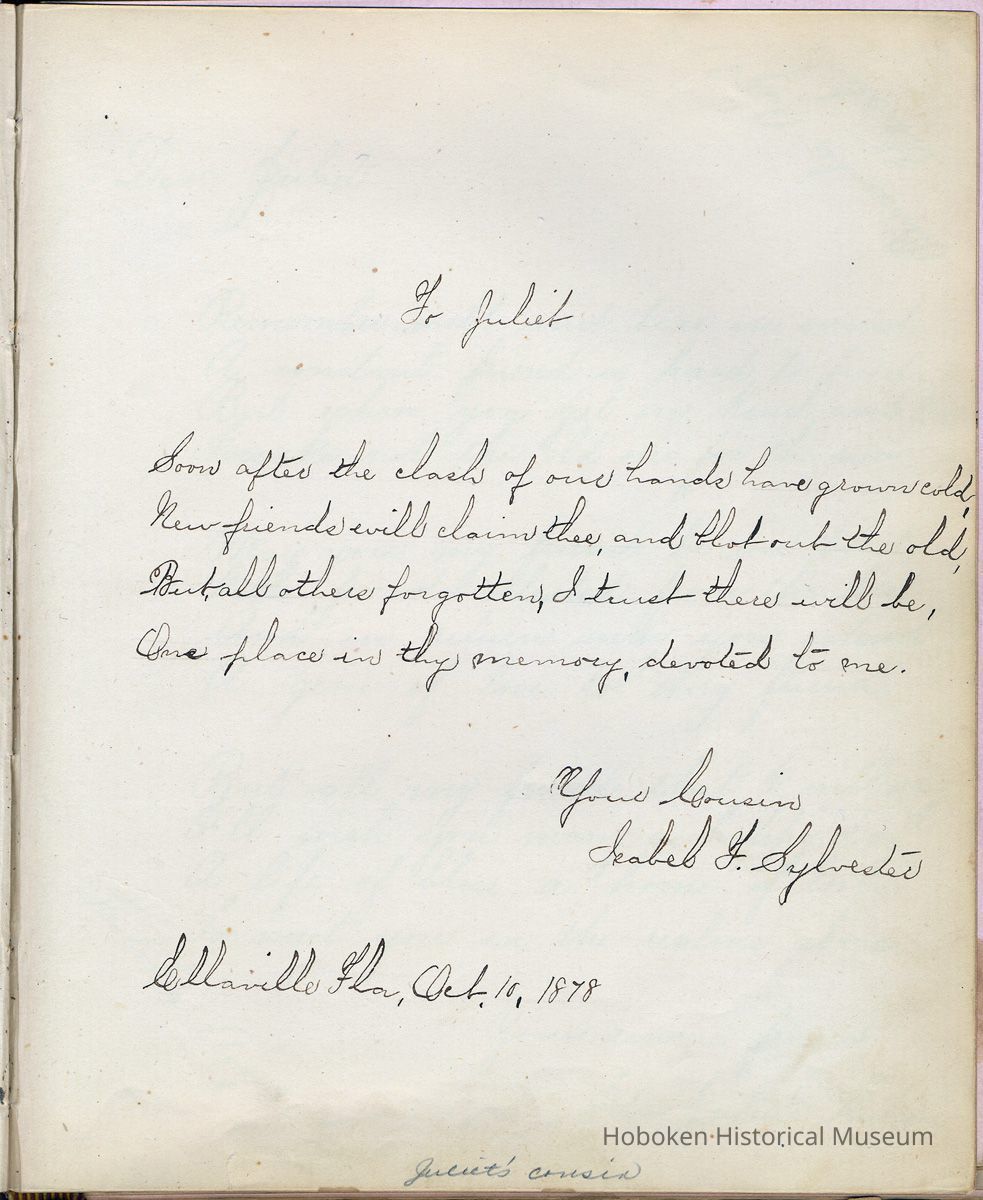 To Juliet
Soon after the clash of our hands have grown cold,
New friends will claim thee, and blot out the old,
But, all others forgotten, I trust there will be,
One place in thy memory, devoted to me.
Your Cousin
Isabel F. Sylvester
Ellaville Fla, Oct. 10, 1878
Hoboken Historical Museum
Juliet's cousin